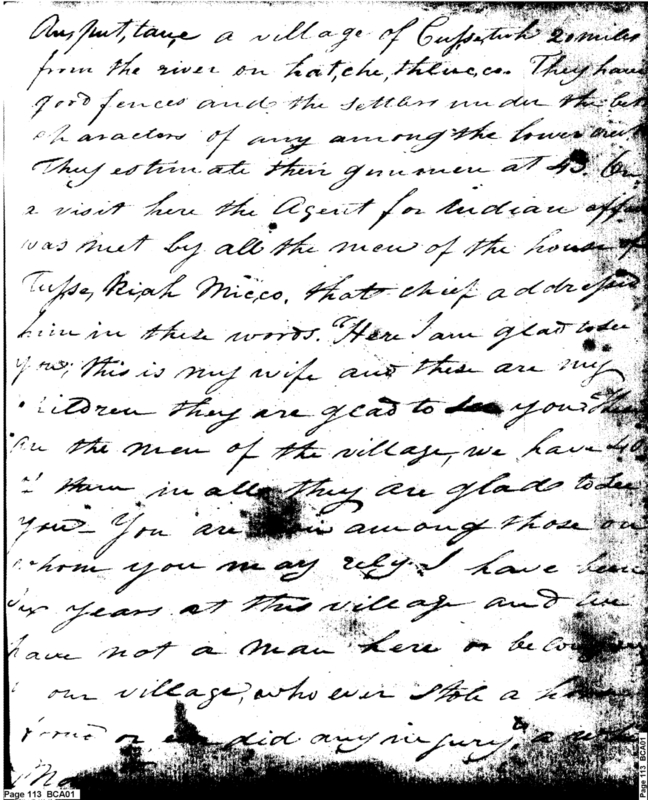 Auput,tau,e a village of Cussetuh 20 miles
from the river on hat,che,thluc,co. They have
good fences and the settlers under the best
characters of any among the lower creeks
They estimate their gunmen at 43. On
a visit here the Agent for indian affairs
was met by all the men of the house of
Tusse,kiah Mic,co. that chief addressed
him in these words. "Here I am glad to see
you; this is my wife and these are my
children they are glad to see you These
are the men of the village, we have 40
of them in all they are glad to see
you - You are among those on
whom you may rely. I have been
six years at this village and we
have not a man here or belonging
our village, who ever stole a horse
from or did any injury to a white
Page 113 BCA01
Page 113 BCA01